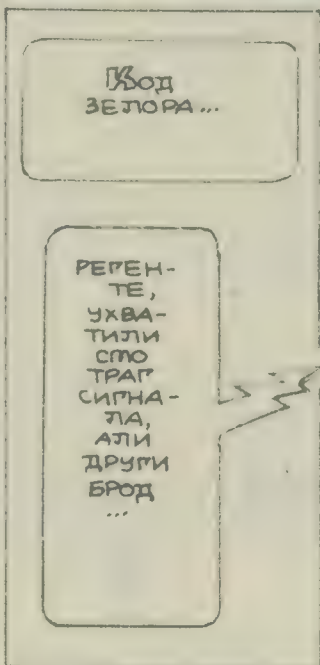 Код
ЗЕЛОРА...
РЕГЕН-
ТЕ,
УХВА-
ТИЛИ
СМО
ТРАГ
СИГНА-
ЛА,
АЛИ
ДРУГИ
БРОД
...